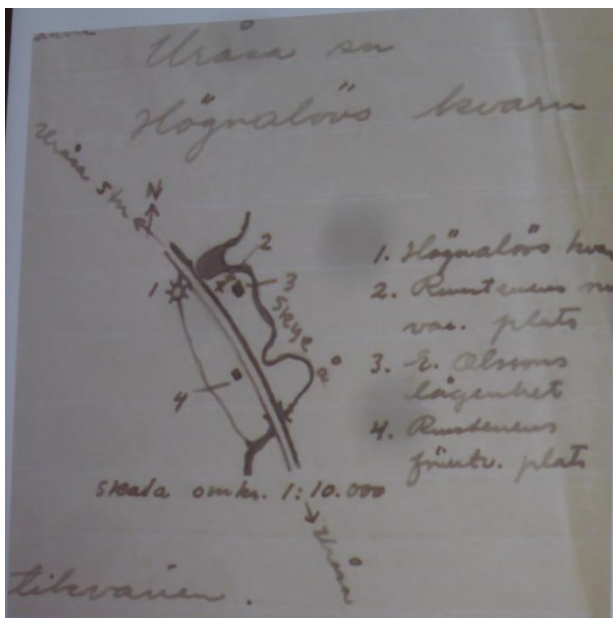 Uråsa sn
Högnalövs kvarn
Uråsa 5 km
N
1
2
3
4
Skye å
1. Högnalövs
2. Runstenens
vac. plats
3. E. Olssons
lägenhet
4. Runstenens
plats
skala omkr. 1:10.000
Uråsa